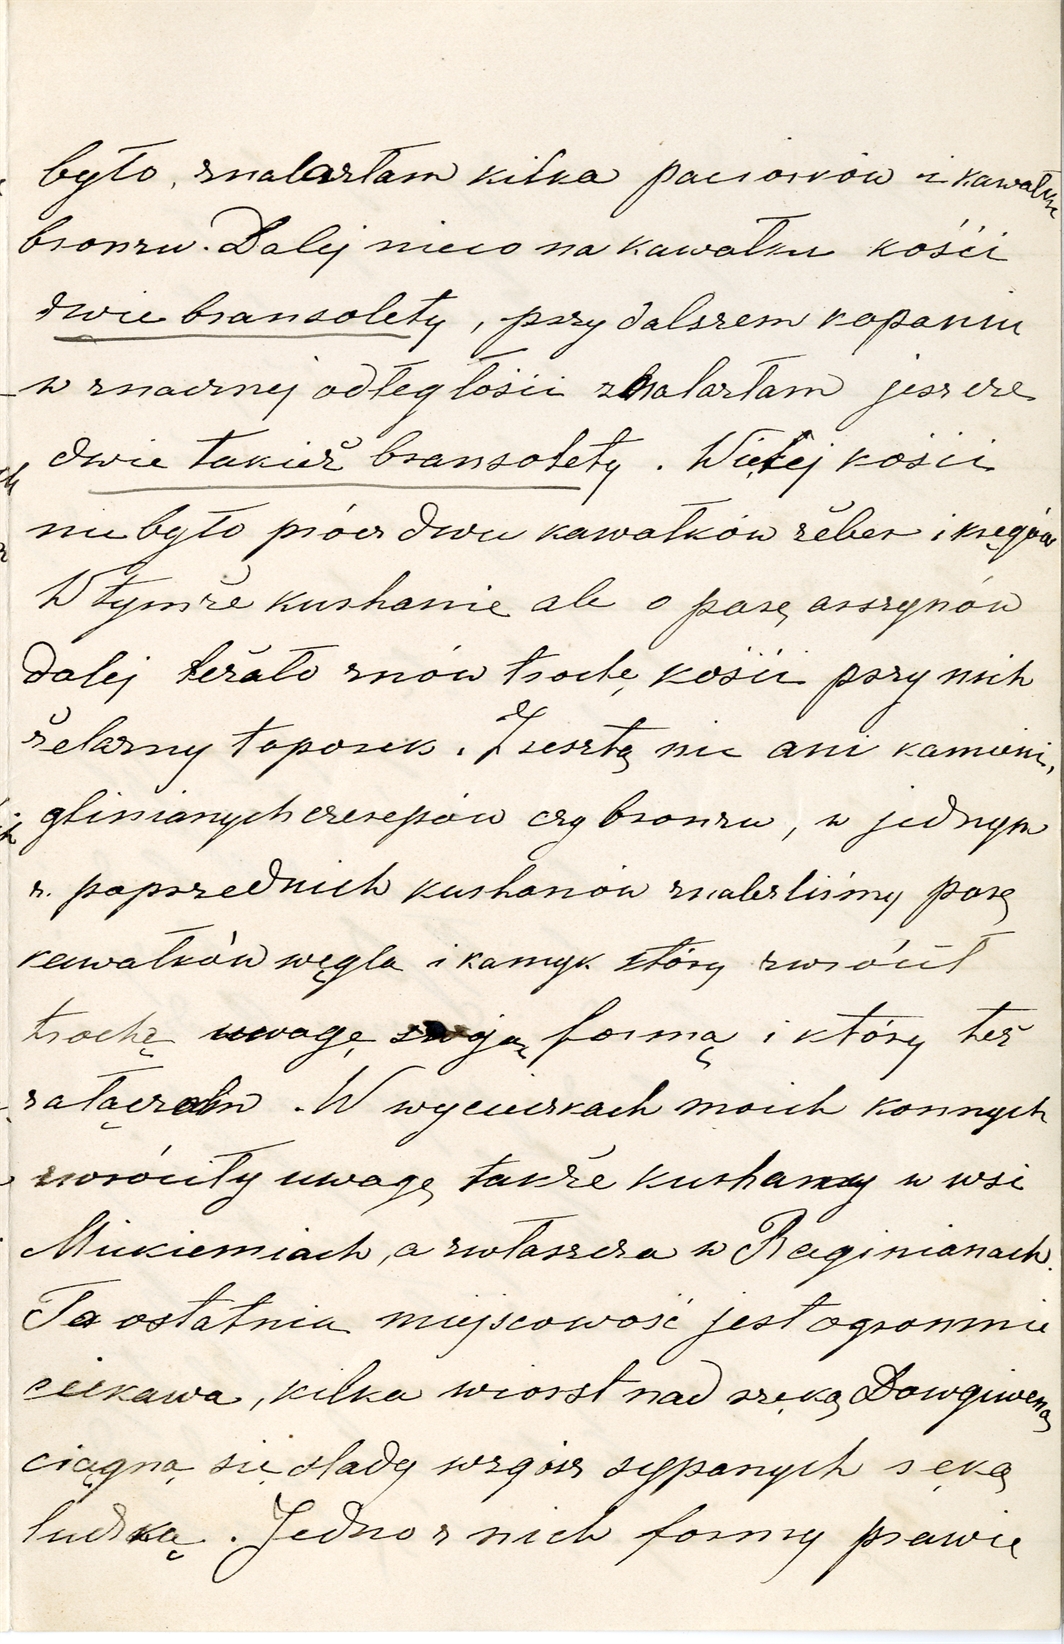 było, znalazłam kilka paciorków i kawałki
bronzu. Dalej nieco na kawałku kości
dwie bransolety, przy dalszem kopaniu
w znacznej odległości znalazłam jeszcze
dwie takież bransolety. Więcej kości
nie było prócz dwu kawałków żeber i kręgów
W tymże kurhanie ale o parę arszynów
dalej leżało znów trochę kości przy nich
żelazny toporek. Zresztą nic ani kamieni,
glinianych czerepów czy bronzu, w jednym
z poprzednich kurhanów znaleźliśmy parę
kawałków węgla i kamyk który zwrócił
trochę uwagę swoją formą i który też
załączam. W wycieczkach moich konnych
zwróciły uwagę także kurhany w wsi
Mickiemiach, a zwłaszcza w Raginianach.
Ta ostatnia miejscowość jest ogromnie
ciekawa, kilka wiorst nad rzeką Dowgiweną
ciągną się ślady wzgórz sypanych ręką
ludzką. Jedno z nich formy prawie